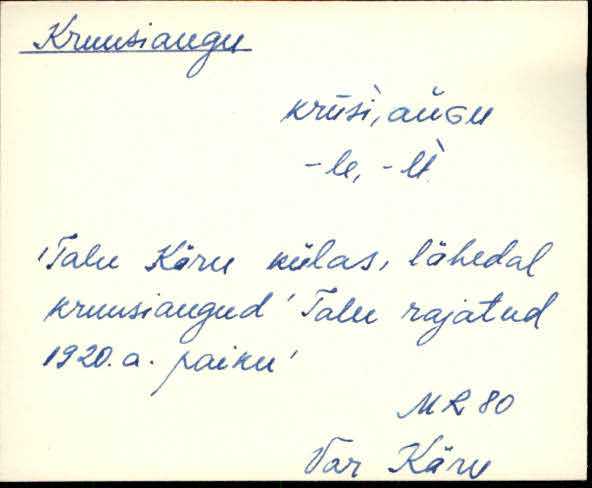 Kruusiaugu
krūsì, aūGu
-le, -lt̀
'Talu Käru külas, lähedal
kruusiaugud' Talu rajatud
1920. a. paiku'
MR 80
Var Käru